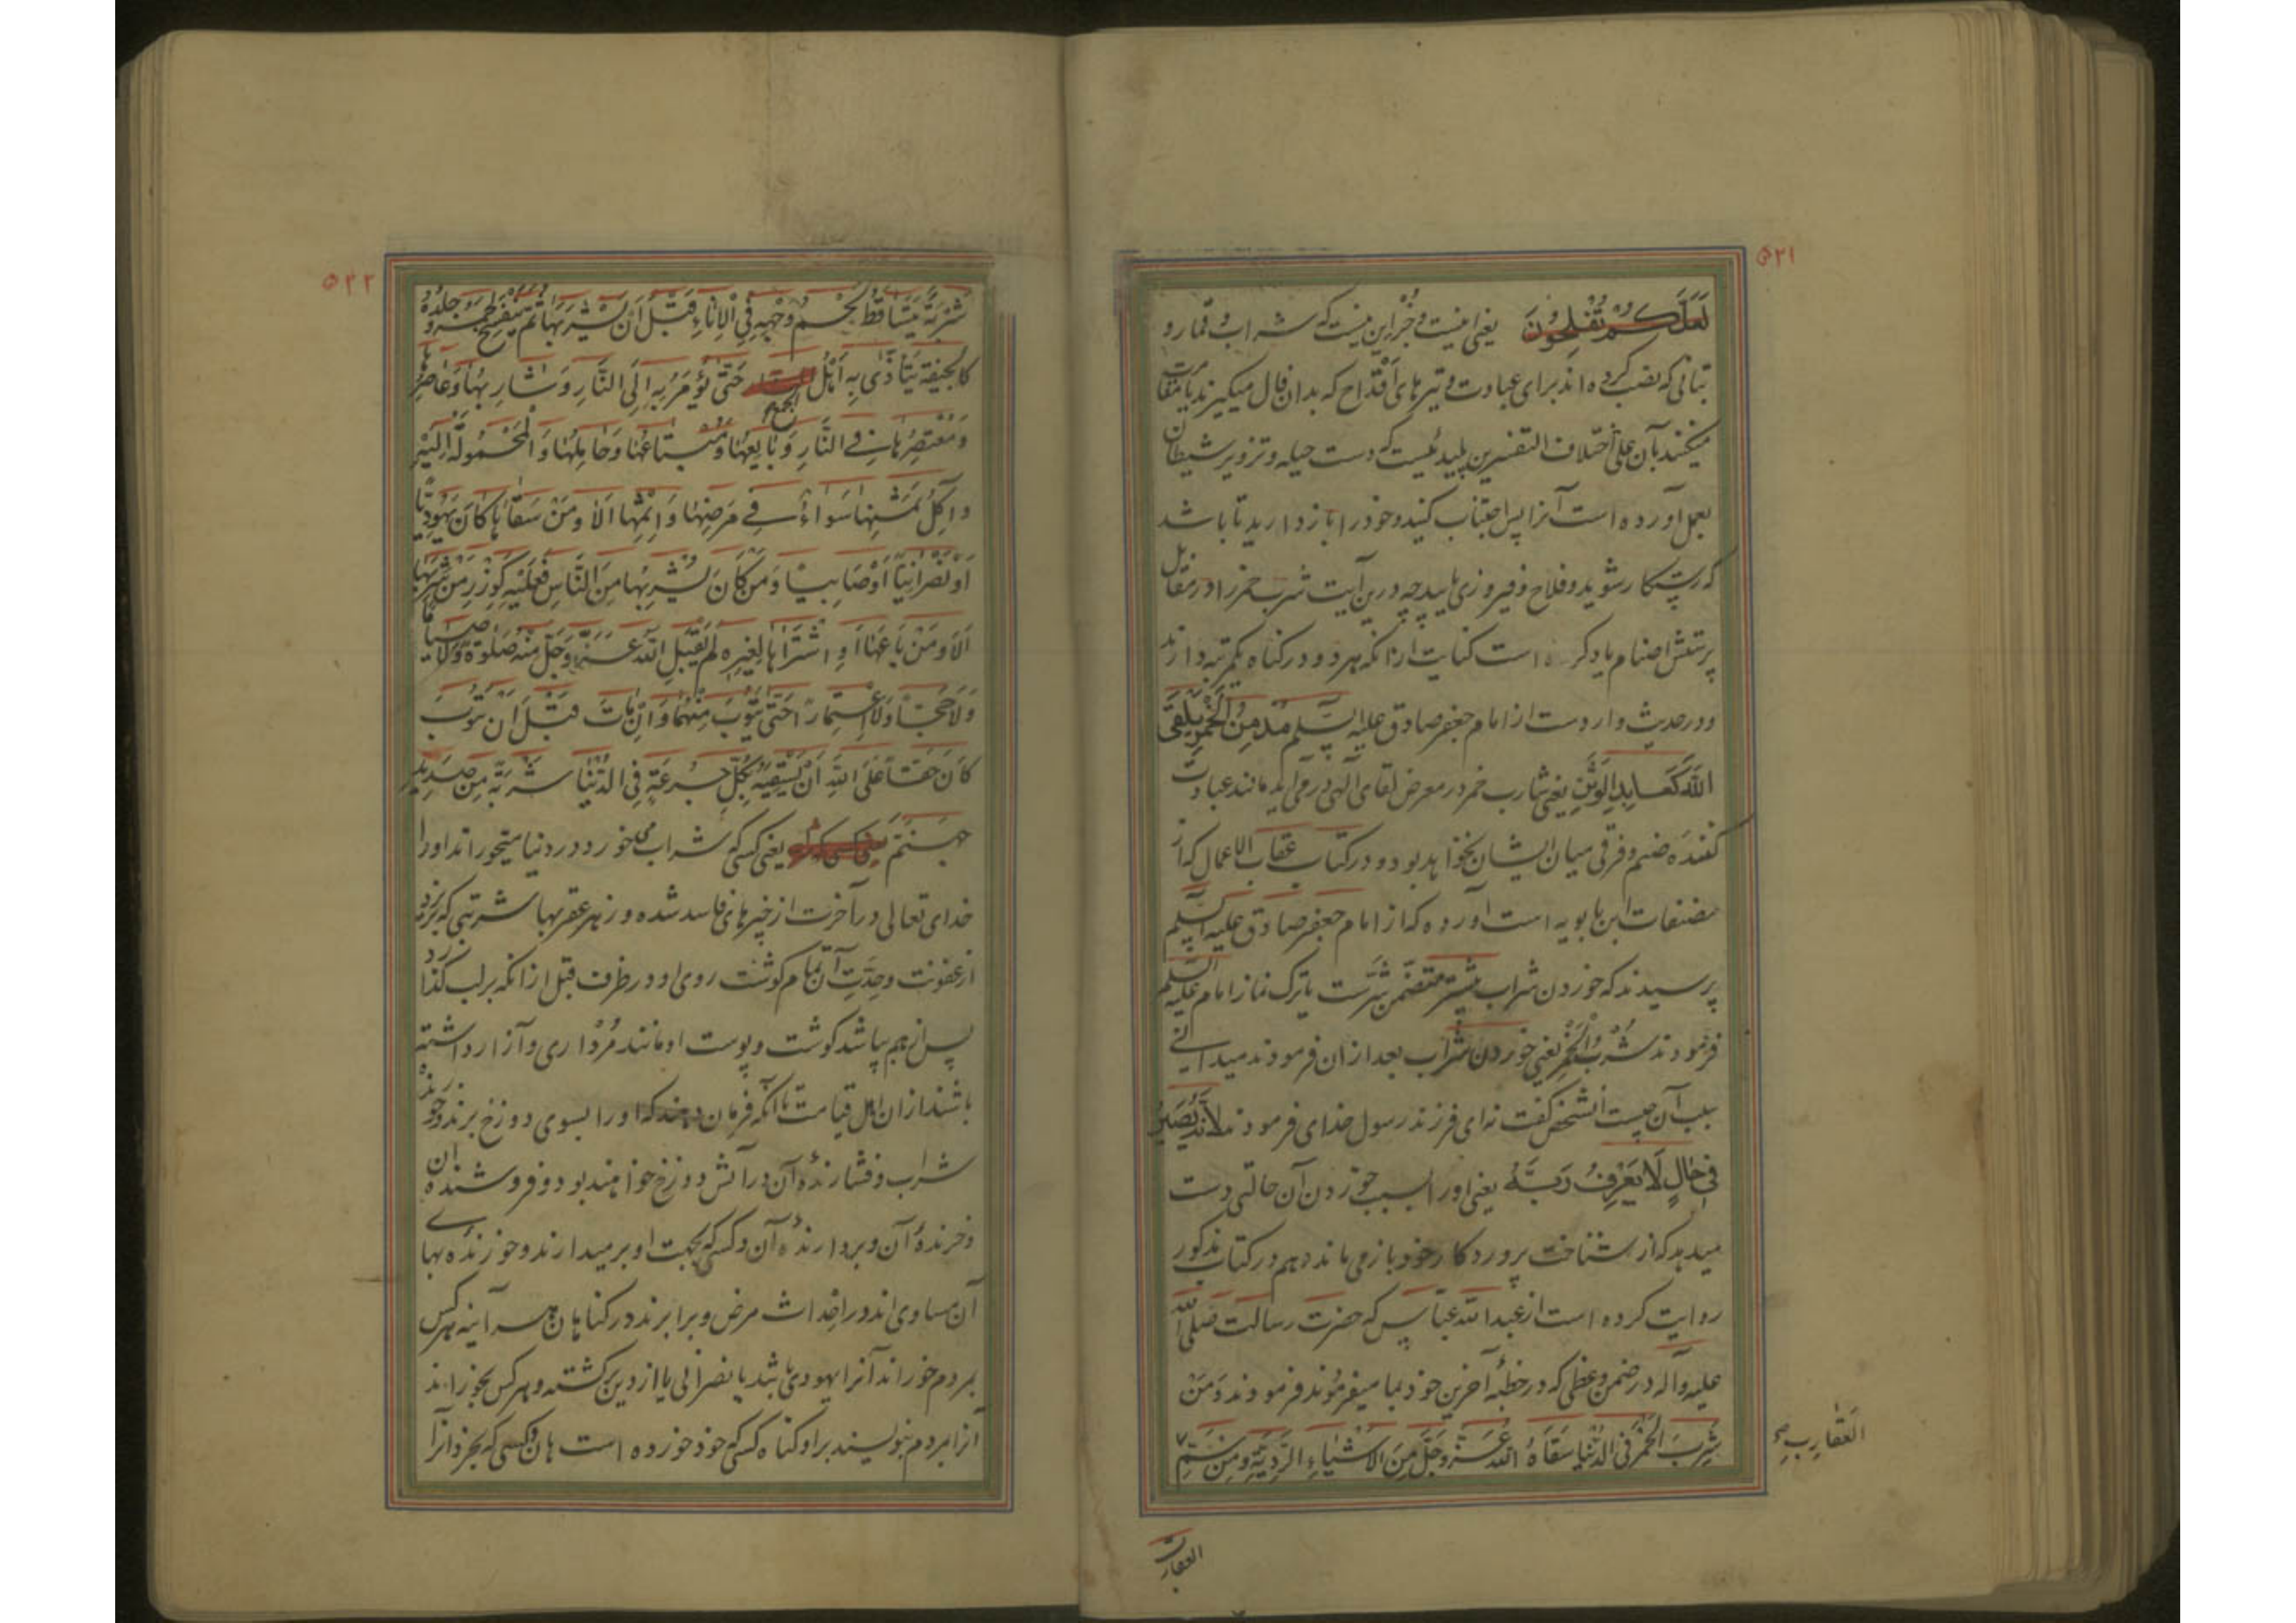 ۵۲۱
لَعَلَّكُمْ تُفْلِحُونَ یعنی اینست و جُز این نیست که شراب و قمار و
بتانی که نصب کرده اند برای عبادت و تیرهای اَقْداح که بدان فال میگیرند یا مقامرت
میکنند بآن علی اختلاف التفسیرین پلیدئیست که دست حیله و تزویر شیطان
بعمل آورده است آنرا پس اجتناب کنید و خود را باز دارید تا باشد
که رستکار شوید و فلاح و فیروزی یابید چه درین آیت شرب خمر را در مقابل
پرستش اصنام یاد کرده است کنایت ازانکه هر دو در کناه یکمرتبه دارند
و در حدیث وارد است از امام جعفر صادق علیه السّلم مُدْمِنُ الْخَمْرِ یَلْقَی
اللّٰهَ كَعَابِدِ الْوَثَنِ یعنی شارب خمر در معرض لقای الهی در می اید مانند عبادت
کننده صنم و فرقی میان ایشان نخواهد بود و در کتاب عقاب الاعمال که از
مصنفات ابن بابویه است آورده که از امام جعفر صادق علیه السّلم
پرسیدند که خوردن شراب بیشتر متضمن شرّست یا ترک نماز امام علیه السّلم
فرمودند شُرْبُ الْخَمْرِ یعنی خوردن شراب بعد ازان فرمودند میدانی
سبب آن چیست آنشخص کفت نه ای فرزند رسول خدای فرمودند لِاَنَّهُ یَصیرُ
فِی حَالٍ لَا یَعْرِفُ رَبَّهُ یعنی او را بسبب خوردن آن حالتی دست
میدهد که از شناخت پروردکار خود باز می ماند و هم در کتاب مذکور
روایت کرده است از عبد اللّه عبّاس که حضرت رسالت صَلَّی اللّه
علیه و آله در ضمن وعظی که در خطبهٔ آخرین خود بما میفرمُوند فرمودند وَمَنْ
شَرِبَ الْخَمْرَ فِی الدُّنْیَا سَقَاهُ اللّٰهُ عَزَّ وَجَلَّ مِنَ الْاَشْیَاءِ الرَّدِیَّةِ وَمِنْ سَمِّ
العَقَارِبِ صح
العقارب
۵۲۲
شَرْبَةً یَتَسَاقَطُ لَحْمُ وَجْهِهِ فِی الْاِنَاءِ قَبْلَ اَنْ یَشْرَبَهَا ثُمَّ یَتَفَسَّخُ لَحْمُهُ وَ جِلْدُهُ
كَالْجِیفَةِ یَتَاَذَّی بِهِ اَهْلُ الجَمْعِ حَتّٰی یُؤْمَرُ بِهِ اِلَی النَّارِ وَشَارِبُهَا وَعَاصِرُهَا
وَمُعْتَصِرُهَا فِی النَّارِ وَبَایِعُهَا وَمُبْتَاعُهَا وَحَامِلُهَا وَالْمَحْمُولَةُ اِلَیْهِ
وَاٰكِلُ ثَمَنِهَا سَوَاءٌ فِی مَرَضِهَا وَاِثْمِهَا اَلَا وَمَنْ سَقَاهَا كَانَ یَهُودِیًّا
اَوْ نَصْرَانِیًّا اَوْ صَابِیِیًّا وَمَنْ كَانَ یَشْرَبُهَا مِنَ النَّاسِ فَعَلَیْهِ كَوِزْرِ مَنْ شَرِبَهَا
اَلَا وَمَنْ بَاعَهَا اَوِ اشْتَرَاهَا لِغَیْرِهِ لَمْ یَقْبَلِ اللّٰهُ عَزَّ وَجَلَّ مِنْهُ صَلٰوةً وَلَا صِیَامًا
وَلَا حَجًّا وَلَا اعْتِمَارًا حَتّٰی یَتُوبَ مِنْهَا وَاِنْ مَاتَ قَبْلَ اَنْ یَتُوبَ
كَانَ حَقًّا عَلَی اللّٰهِ اَنْ یَسْقِیَهُ بِكُلِّ جُرْعَةٍ فِی الدُّنْیَا شَرْبَةً مِنْ صَدِیدِ
جَهَنَّمَ یعنی کسی که شراب می خورد در دنیا میخوراند او را
خدای تعالی در آخرت از چیزهای فاسد شده و زهر عقربها شربتی که بریزد
از عفونت و حِدَّتِ آن تمام کوشت روی او در ظرف قبل ازانکه بر لب کذارد
پس از هم بپاشد کوشت و پوست او مانند مُرْداری و آزار داشته
باشند ازان اهل قیامت تا آنکه فرمان دهند که او را بسوی دوزخ برند و خورندهٔ
شراب و فشارندهٔ آن در آتش دوزخ خواهند بود و فروشنده ان
و خرندهٔ آن و بردارندهٔ آن و کسی که بجهت او بر میدارند و خورنده بهای
آن مساوی اند در اِحداث مرض و برابرند در کناهان هر آینه هر کس
بمردم خوراند آنرا یهودی باشد یا نصرانی یا از دین برکشته و هر کس بخوراند
آنرا بمردم بنویسند بر او کناه کسی که خود خورده است هان و کسی که بخرد آنرا